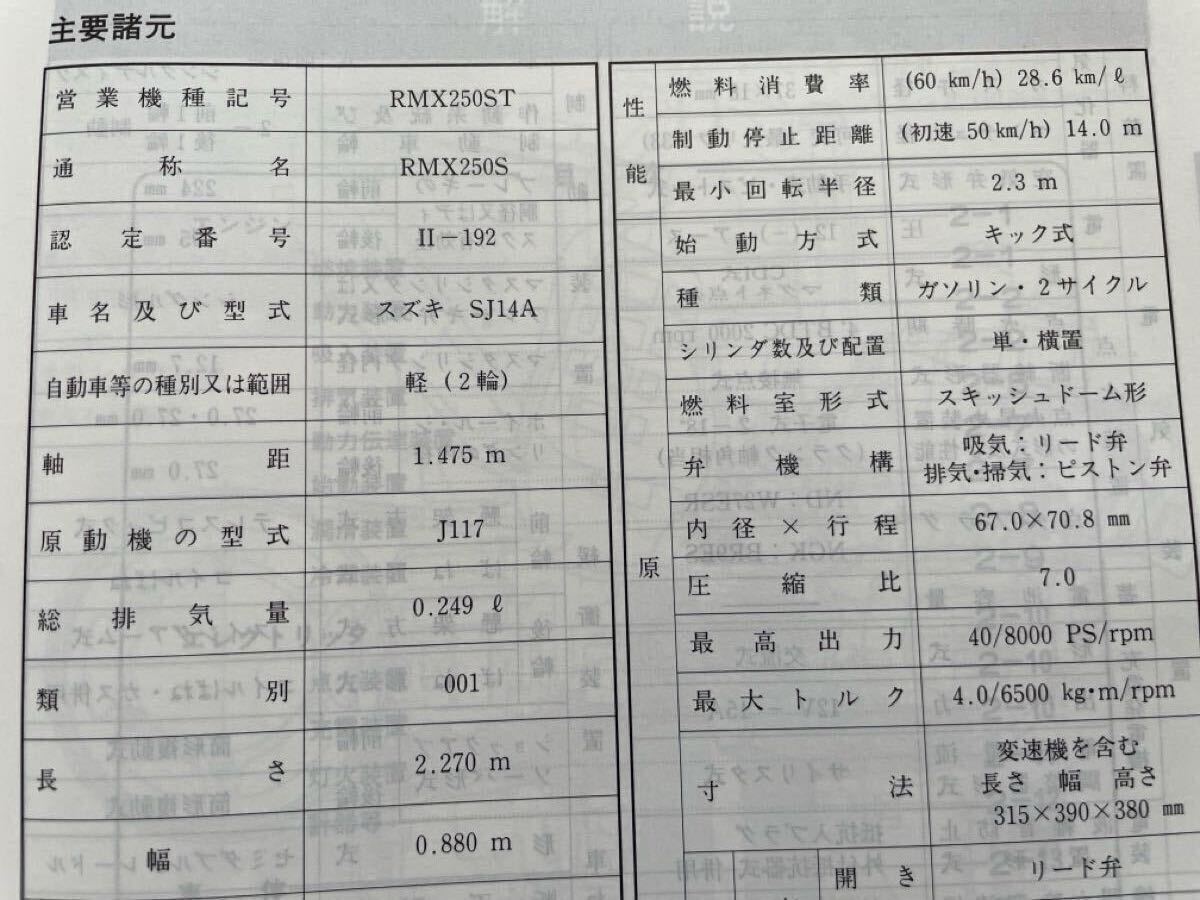 主要諸元
営業機種記号 RMX250ST
通称名 RMX250S
認定番号 II－192
車名及び型式 スズキ SJ14A
自動車等の種別又は範囲 軽（2輪）
軸距 1.475 m
原動機の型式 J117
総排気量 0.249 ℓ
類別 001
長さ 2.270 m
幅 0.880 m
性能
燃料消費率 (60 km/h) 28.6 km/ℓ
制動停止距離 (初速 50 km/h) 14.0 m
最小回転半径 2.3 m
原
始動方式 キック式
種類 ガソリン・2サイクル
シリンダ数及び配置 単・横置
燃料室形式 スキッシュドーム形
弁機構 吸気：リード弁
排気・掃気：ピストン弁
内径×行程 67.0×70.8 mm
圧縮比 7.0
最高出力 40/8000 PS/rpm
最大トルク 4.0/6500 kg・m/rpm
寸法 変速機を含む
長さ 幅 高さ
315×390×380 mm
開き リード弁